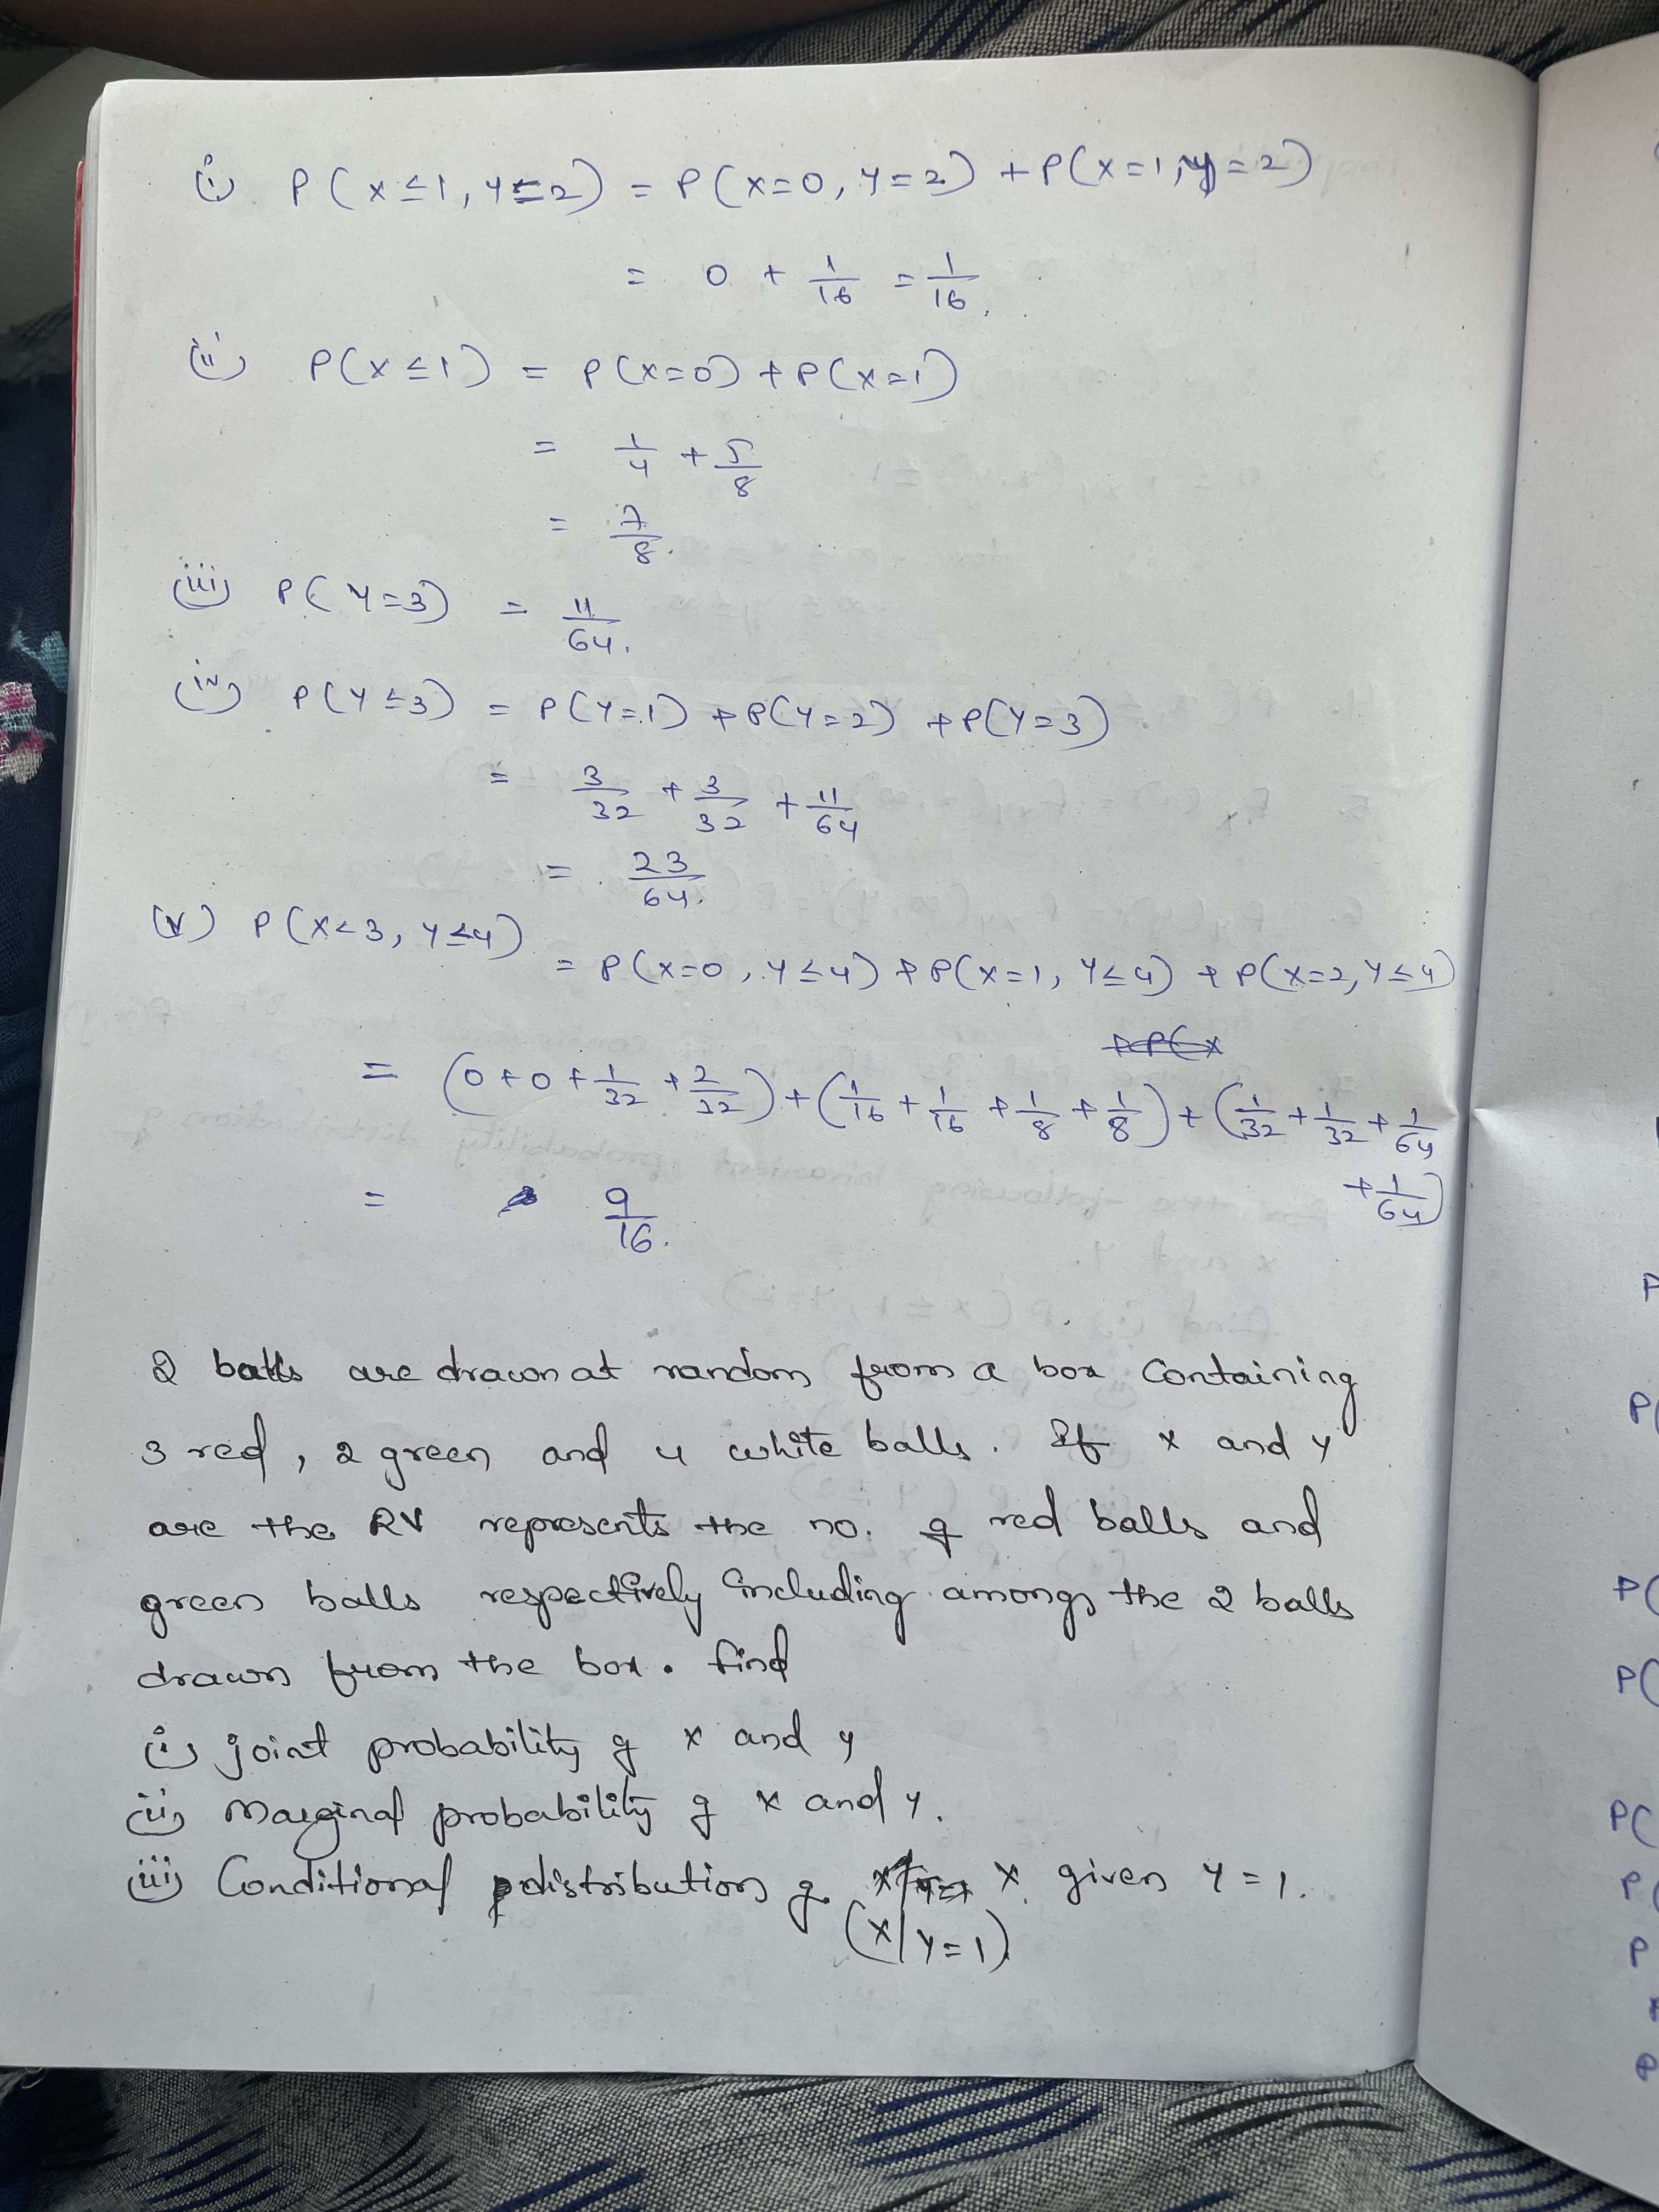 (i) P(x≤1, y=2) = P(x=0, y=2) + P(x=1, y=2)
= 0 + 1/16 = 1/16.
(ii) P(x≤1) = P(x=0) + P(x=1)
= 1/4 + 5/8
= 7/8.
(iii) P(y=3) = 11/64.
(iv) P(y≤3) = P(y=1) + P(y=2) + P(y=3)
= 3/32 + 3/32 + 11/64
= 23/64.
(v) P(x<3, y≤4)
= P(x=0, y≤4) + P(x=1, y≤4) + P(x=2, y≤4)
= (0+0+1/32+2/32) + (1/16+1/16+1/8+1/8) + (1/32+1/32+1/64
+1/64)
= 9/16.
2 balls are drawn at random from a box containing
3 red, 2 green and 4 white balls. If x and y
are the RV represents the no. of red balls and
green balls respectively including among the 2 balls
drawn from the box. find
(i) joint probability of x and y
(ii) Marginal probability of x and y.
(iii) Conditional distribution of x given y=1.
(x/y=1)
P
P(
P(
P(
P(
P(
P